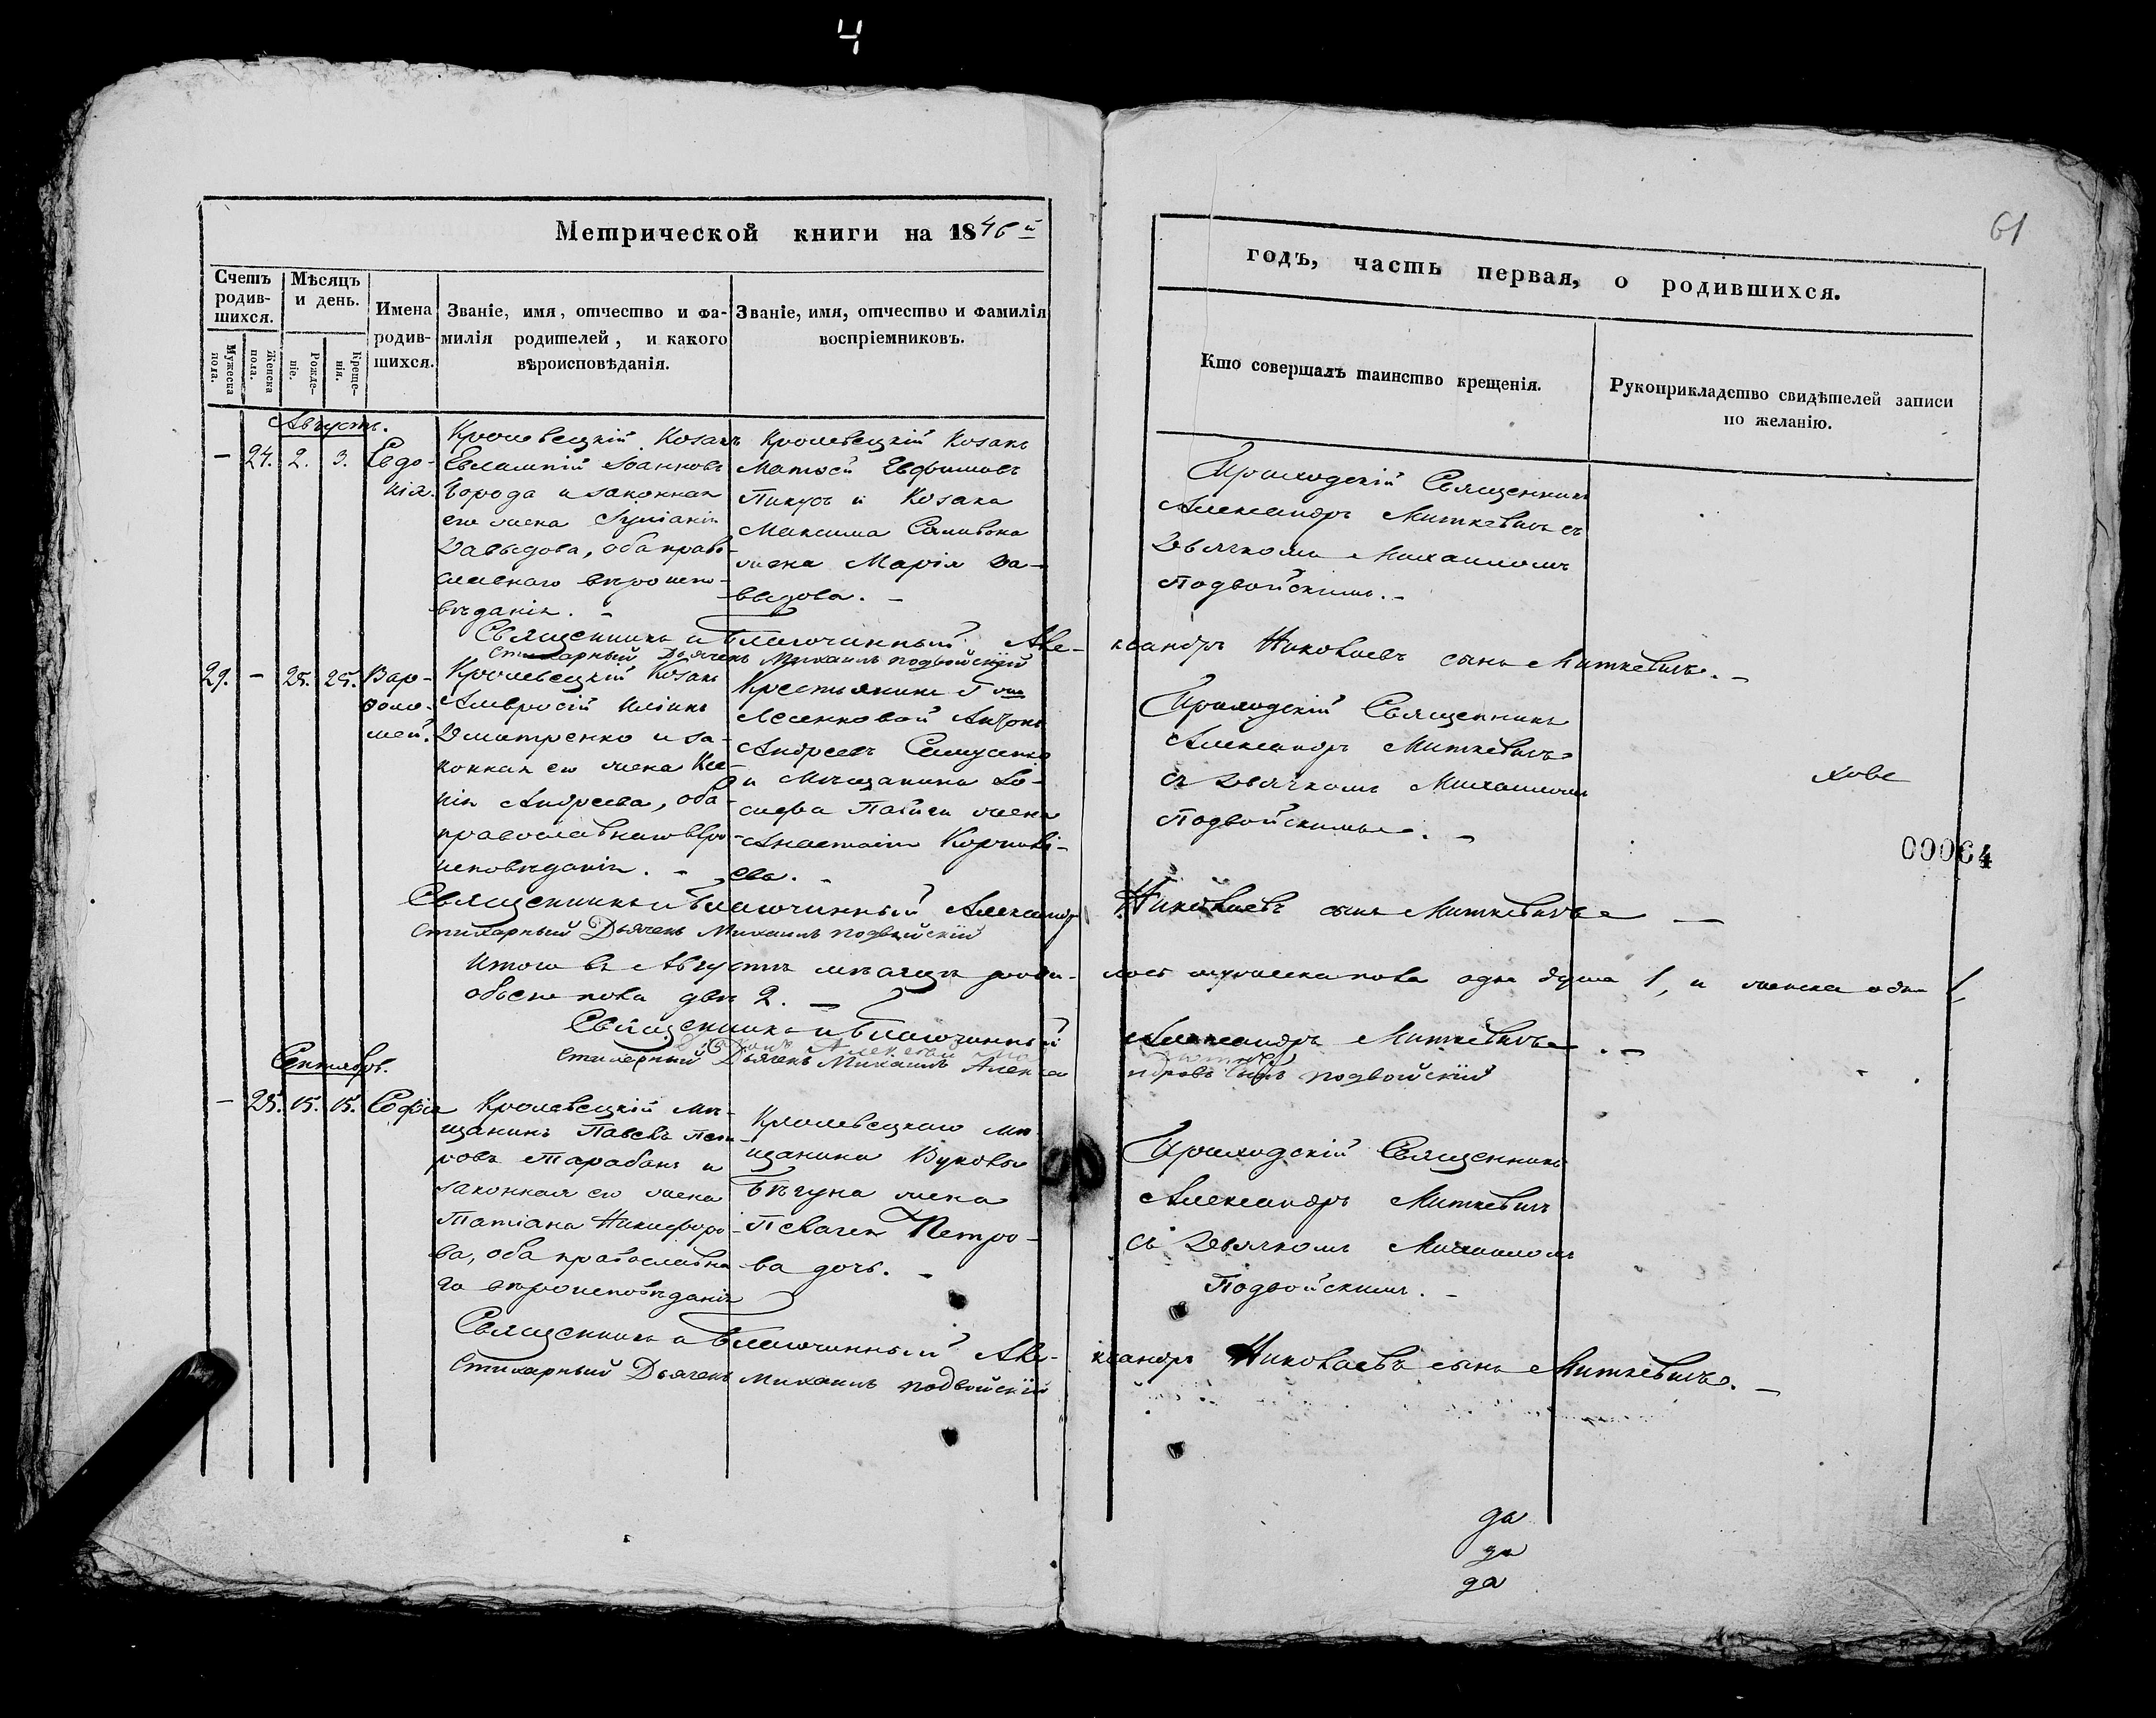 4
61
Метрической книги на 1846й
годъ, часть первая, о родившихся.
Счетъ родив-шихся.
Мѣсяцъ и день.
Мужеска пола.
Женска пола.
Рожде-ніе.
Креще-нія.
Имена родив-шихся.
Званіе, имя, отчество и фа-
милія родителей, и какого
вѣроисповѣданія.
Званіе, имя, отчество и фамилія
воспріемниковъ.
Кто совершалъ таинство крещенія.
Рукоприкладство свидѣтелей записи
по желанію.
Августъ.
— 24. 2. 3. Евдо-
кія.
Кролевецкій Козакъ
Евлампій Іоанновъ
Борода и законная
его жена Іуліанія
Давыдова, оба право-
славнаго вѣроиспо-
вѣданія. -
Кролевецкій Козакъ
Матѳей Евфимовъ
Пикусъ и Козака
Максима
жена Марія Да-
выдова. -
Приходскій Священникъ
Александръ Миткевичъ съ
Дьячкомъ Михаиломъ
Подвойскимъ. -
Священникъ и Благочинный Але-
ксандръ Николаевъ сынъ Миткевичъ. -
Стихарный Дьячекъ Михаилъ Подвойскій
29. — 25. 25. Вар-
ѳоло-
мей.
Кролевецкій Козакъ
Амвросій Иліинъ
Дмитренко и за-
конная его жена
Андреева, оба
православнаго вѣро-
исповѣданія. -
Крестьянинъ
Антонъ
Андреевъ
и Мѣщанина Іо-
сифа жена
Анастасія Корнилі-
ева. -
Приходскій Священникъ
Александръ Миткевичъ
съ Дьячкомъ Михаиломъ
Подвойскимъ. -
00064
Священникъ и Благочинный Александръ
Николаевъ сынъ Миткевичъ —
Стихарный Дьячекъ Михаилъ Подвойскій
Итого въ Августѣ мѣсяцѣ роди-
лось мужеска пола одна душа 1, и женска одна 1,
обоего пола двѣ 2. —
Священникъ и Благочинный
Александръ Миткевичъ. -
Стихарный Дьячекъ Михаилъ Алекса
ндровъ сынъ Подвойскій
Сентябрь.
— 25. 15. 15. Софія
Кролевецкій мѣ-
щанинъ Павелъ Пет-
ровъ Тарабанъ и
законная его жена
Татіана Никифоро-
ва, оба православна-
го вѣроисповѣданія
Кролевецкаго мѣ-
щанина Вукола
Бѣгуна жена
Пелагея Петро-
ва дочь. -
Приходскій Священникъ
Александръ Миткевичъ
съ Дьячкомъ Михаиломъ
Подвойскимъ. -
Священникъ и Благочинный Але-
ксандръ Николаевъ сынъ Миткевичъ. -
Стихарный Дьячекъ Михаилъ Подвойскій
да
да
да